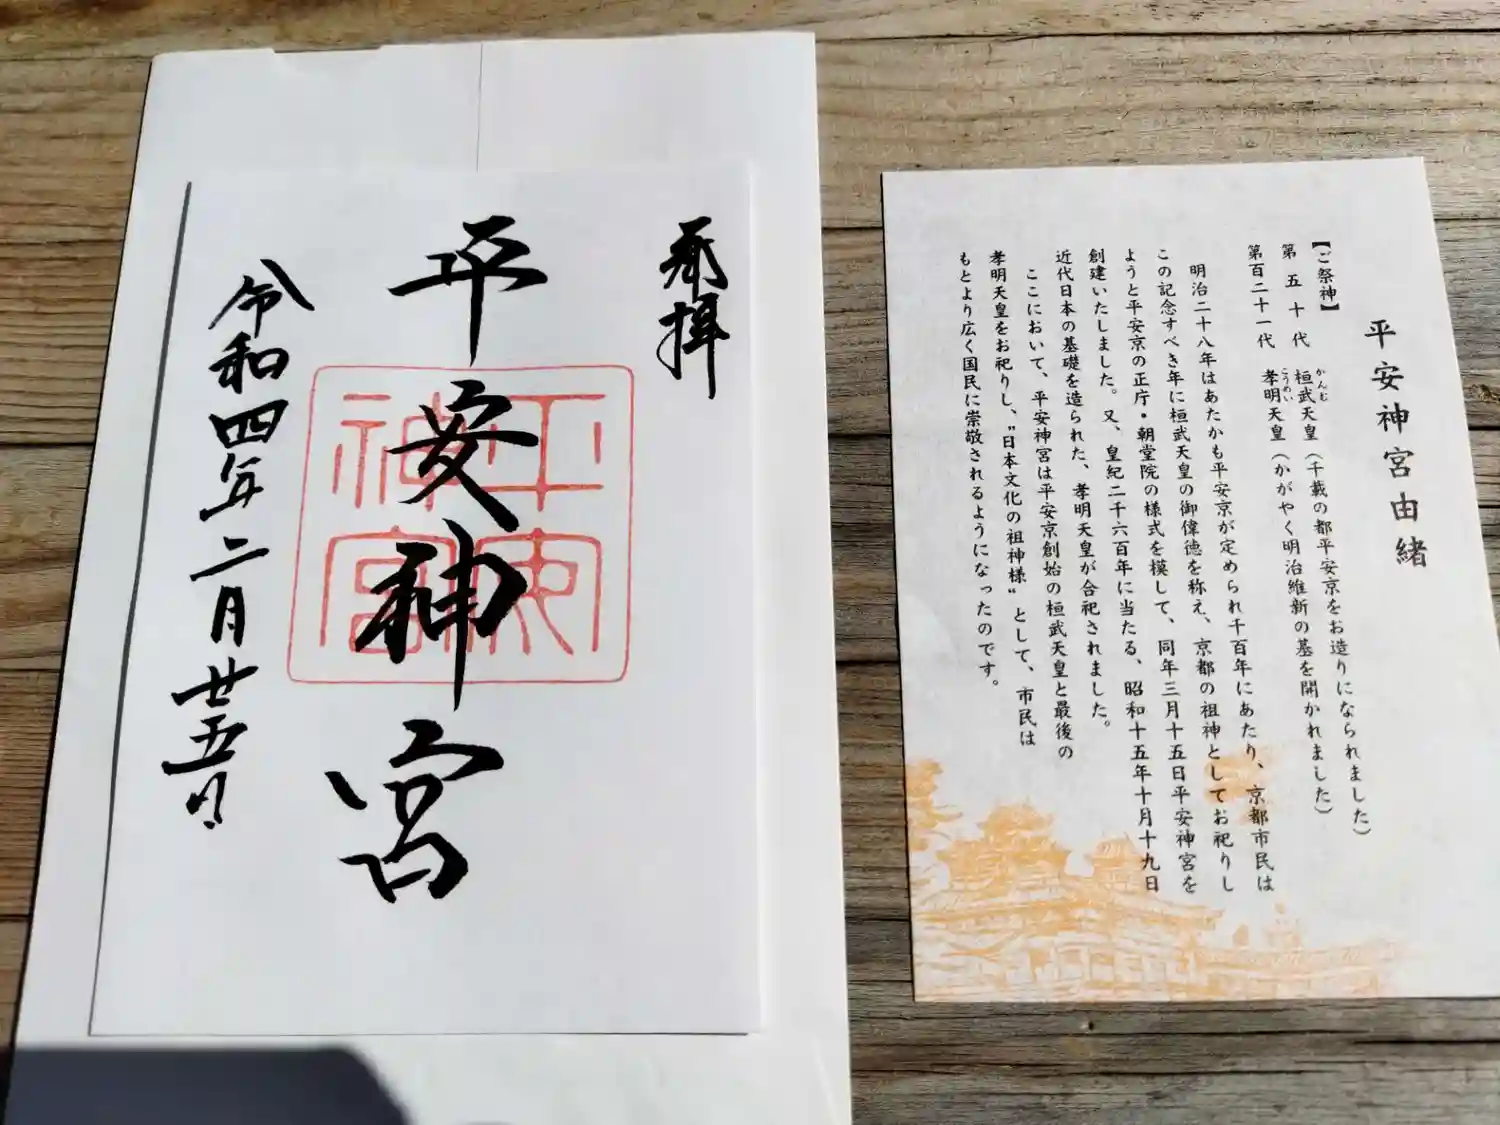 奉拝
平安神宮
平安神宮
令和四年二月廿五日
平安神宮由緒
【ご祭神】
第五十代 桓武天皇(千載の都平安京をお造りになられました)
かんむ
第百二十一代 孝明天皇(かがやく明治維新の基を開かれました)
こうめい
明治二十八年はあたかも平安京が定められ千百年にあたり、京都市民は
この記念すべき年に桓武天皇の御偉徳を称え、京都の祖神としてお祀りし
ようと平安京の正庁・朝堂院の様式を模して、同年三月十五日平安神宮を
創建いたしました。又、皇紀二千六百年に当たる、昭和十五年十月十九日
近代日本の基礎を造られた、孝明天皇が合祀されました。
ここにおいて、平安神宮は平安京創始の桓武天皇と最後の
孝明天皇をお祀りし、"日本文化の祖神様"として、市民は
もとより広く国民に崇敬されるようになったのです。